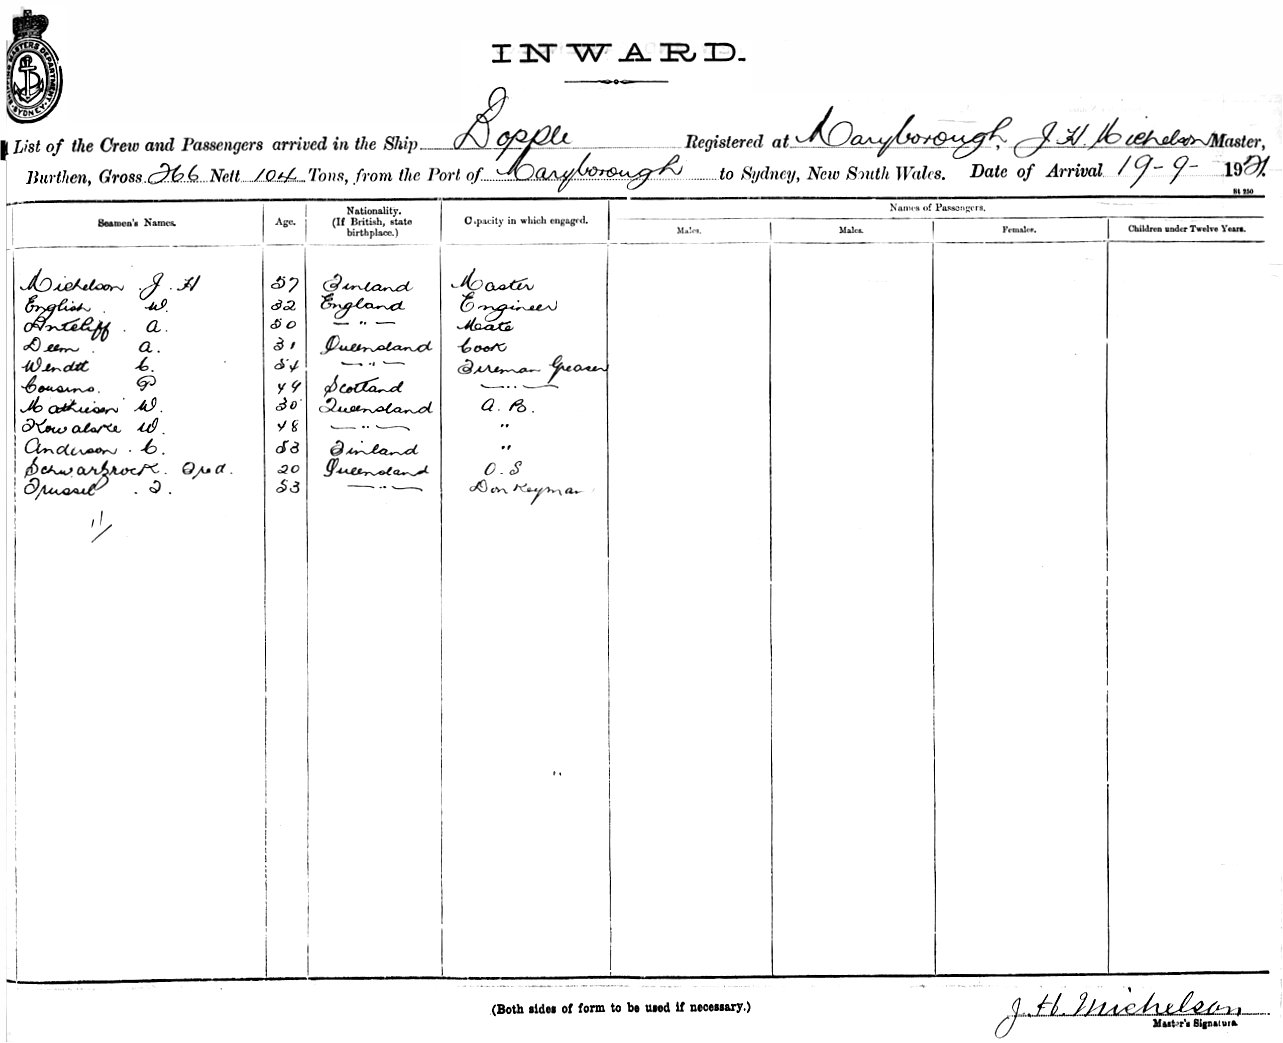 SHIPPING MASTERS DEPARTMENT SYDNEY
INWARD.
List of the Crew and Passengers arrived in the Ship Bopple Registered at Maryborough, J H Michelson Master,
Burthen, Gross 266 Nett 104 Tons, from the Port of Maryborough to Sydney, New South Wales. Date of Arrival 19-9-1921.
St 250
Seamen's Names. Age. Nationality. (If British, state birthplace.) Capacity in which engaged. Names of Passengers.
Males. Males. Females. Children under Twelve Years.
Michelson J. H 57 Finland Master
English W. 32 England Engineer
Antcliff A. 50 — " — Mate
Deem A. 31 Queensland Cook
Wendt C. 54 — " — Fireman Greaser
Cousins. P 49 Scotland — " —
Mathieson W. 30 Queensland A. B.
Kowalske W. 48 — " — "
Anderson C. 53 Finland "
Schwarbrock. Fred. 20 Queensland O. S
Trussel F. 53 — " — Donkeyman
11/
(Both sides of form to be used if necessary.)
J. H. Michelson
Master's Signature.